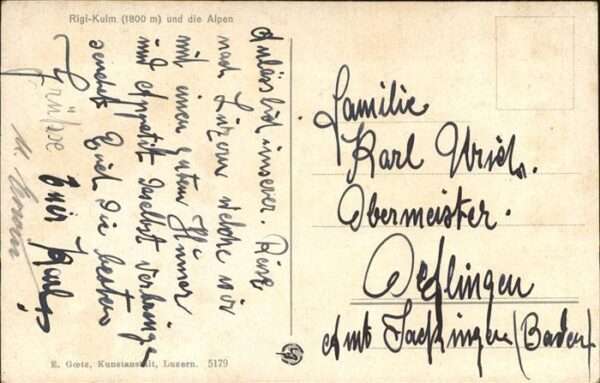 Rigi-Kulm (1800 m) und die Alpen
Anlässlich unserer Reise
nach Luzern welche wir
mit einen guten Humor
und Appetit daselbst verbringen
sendet Euch die besten
Grüsse Euer Karl
u. Erwin
Familie
Karl Ulrich.
Obermeister.
Oeflingen
Amt Säckingen (Baden)
E. Goetz, Kunstanstalt, Luzern. 5179